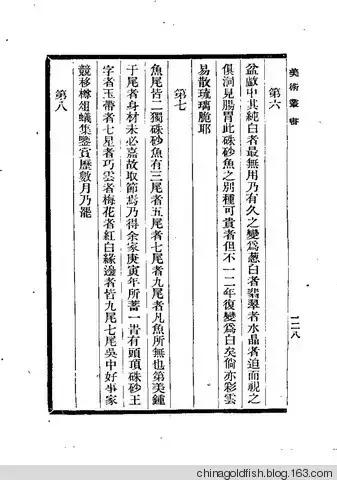 美術叢書
一二八
第六
盆畝中其純白者最無用乃有久之變為葱白者翡翠者水晶者迫而視之
俱洞見腸胃此硃砂魚之別種可貴者但不一二年復變為白矣倘亦彩雲
易散琉璃脆耶
第七
魚尾皆二獨硃砂魚有三尾者五尾者七尾者九尾者凡魚所無也第美鍾
于尾者身材未必嘉故取節焉乃得余家庚寅年所蓄一眥有頭頂硃砂王
字者玉帶者七星者巧雲者梅花者紅白緣邊者皆九尾七尾吳中好事家
競移樽俎蟻集鑒賞歷數月乃罷
第八
chinagoldfish.blog.163.com